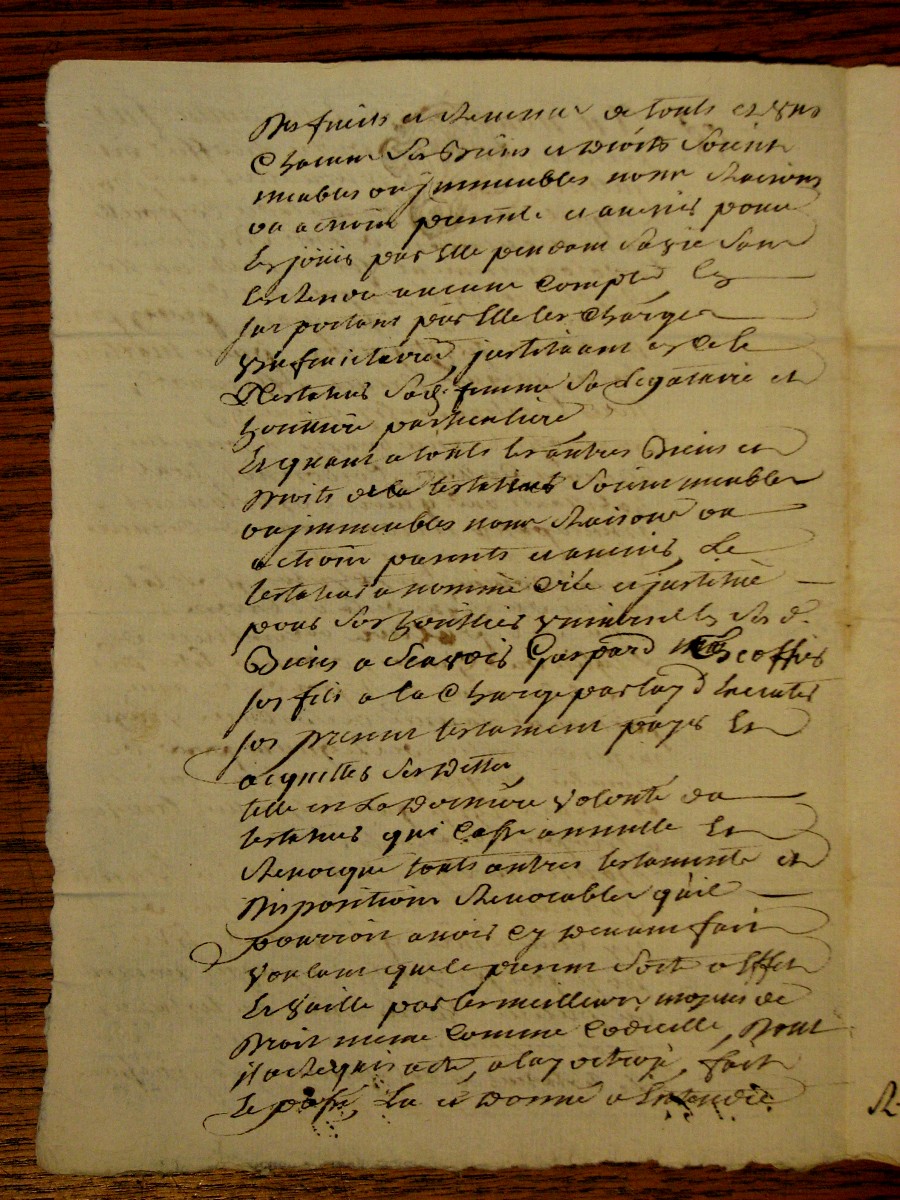 des fruits et Revenus de touts et uns
Chacuns Ses Biens et droits Soient
meubles ou jmmeubles noms Raisons
ou actions presents et avenir pour
En jouir par Elle pendant Sa vie Sans
En Rendre aucuns Comptes En
suportant par Elle les Charges
usufruictaires, justituant led le
Testateur Sad. femme Sa Legataire et
heritiere particuliere
Et quant a touts les autres Biens et
Droits de la testateur Soient meubles
ou jmmeubles noms Raisons ou
actions presents et avenir Le
testateur a nommé Crée et justitué
pour Ses heritiers universels Sesd.
Biens a Scavoir Gaspard Escoffier
son fils a la Charge par luy d'Executer
son present testament payer Et
acquitter Ses Dettes
telle est La Derniere volonté du
testateur qui Casse annulle Et
Revocque touts autres testaments et
Dispositions Revocables quil
pourroit avoir Cy Devant fait
Voulant que le present Sort a Effet
Et Vaille par les meilleurs moyens de
Droit meme Comme Codicille, Dont
il a Requis acte, a luy octroyé, fait
Le passé, Lu et Donné a Entendre